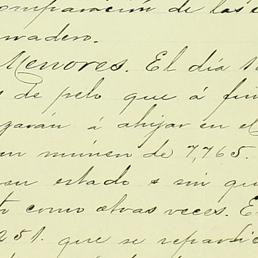 comparación de las
rvadero.
Menores. El día 1
s de pelo que á fin
garán á ahijar en el
un número de 7,765.
su estado é sin qu
como otras veces. E
251. que se repardie